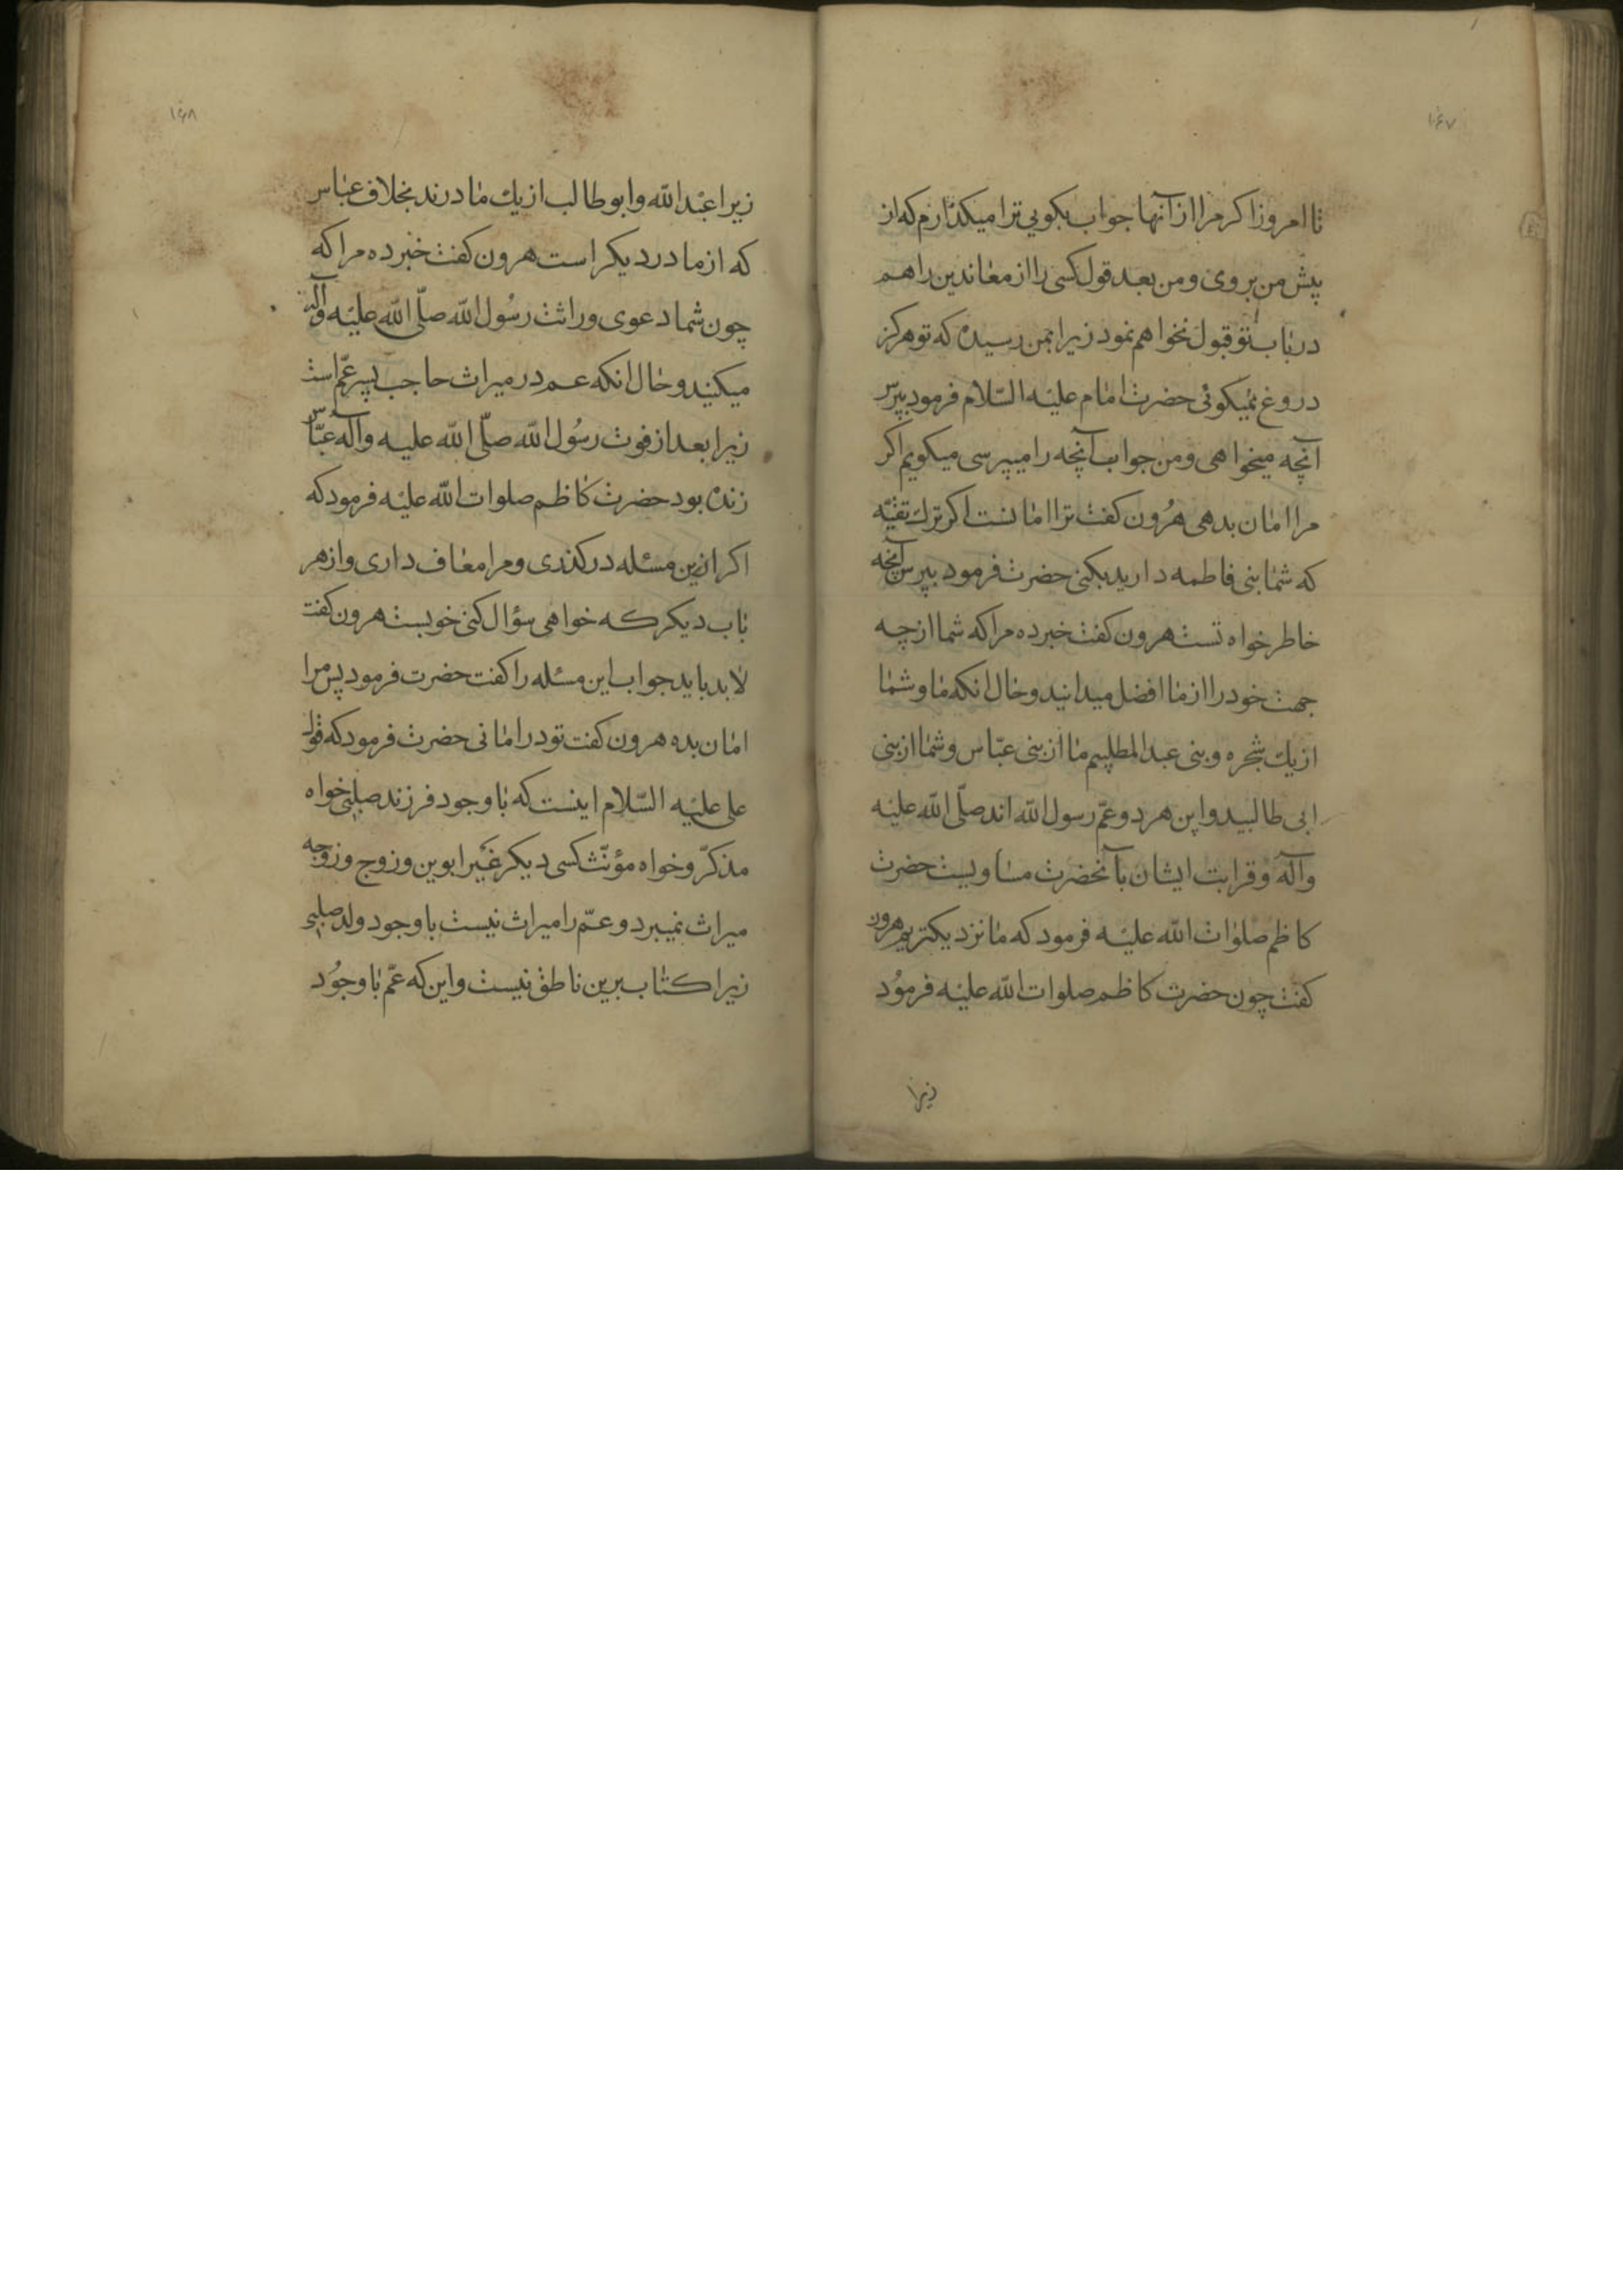 ۱۶۷
تا امروز اکر مرا از آنها جواب بکویی ترا میکذارم که از
پیش من بروی و من بعد قول کسی را از معاندین را هم
در باب تو قبول نخواهم نمود زیرا بمن رسیده که تو هرکز
دروغ نمیکوئی حضرت امام علیه السّلام فرمود بپرس
آنچه میخواهی و من جواب آنچه را میپرسی میکویم اکر
مرا امان بدهی هرُون کفت ترا امانست اکر ترك تقیّه
که شما بنی فاطمه دارید بکنی حضرت فرمود بپرس آنچه
خاطر خواه تست هرون کفت خبر ده مرا که شما از چه
جهت خود را از ما افضل میدانید و حال انکه ما و شما
از یك شجره و بنی عبد المطلبیم ما از بنی عبّاس و شما از بنی
ابی طالبید و این هر دو عمّ رسول اللّه اند صلّی اللّه علیه
وآله و قرابت ایشان بآنحضرت مساویست حضرت
کاظم صلوات اللّه علیه فرمود که ما نزدیکتریم هرون
کفت چون حضرت کاظم صلوات اللّه علیه فرموُد
زیرا
۱۶۸
زیرا عبد اللّه وابو طالب از یك مادرند بخلاف عباس
که از مادر دیکر است هرون کفت خبر ده مرا که
چون شما دعوی وراثت رسُول اللّه صلّی اللّه علیه وآله
میکنید و حال انکه عم در میراث حاجب پسر عمّ است
زیرا بعد از فوت رسُول اللّه صلّی اللّه علیه وآله عبّاس
زنده بود حضرت کاظم صلوات اللّه علیه فرمود که
اکر ازین مسئله درکذری و مرا معاف داری و از هر
باب دیکر که خواهی سؤال کنی خوبست هرون کفت
لابد باید جواب این مسئله را کفت حضرت فرمود پس مرا
امان بده هرون کفت تو در امانی حضرت فرمود که قول
علی علیه السّلام اینست که با وجود فرزند صلبی خواه
مذکّر و خواه مؤنّث کسی دیکر غیر ابوین و زوج و زوجه
میراث نمیبرد و عمّ را میراث نیست با وجود ولد صلبی
زیرا کتاب برین ناطق نیست و این که عمّ با وجوُد